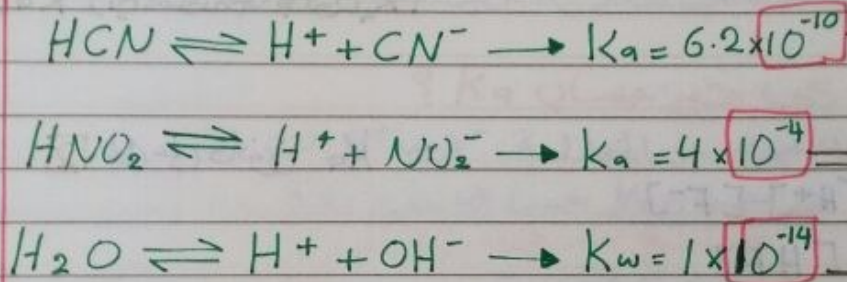 HCN ⇌ H⁺ + CN⁻ → Ka = 6.2×10⁻¹⁰
HNO₂ ⇌ H⁺ + NO₂⁻ → Ka = 4×10⁻⁴
H₂O ⇌ H⁺ + OH⁻ → Kw = 1×10⁻¹⁴